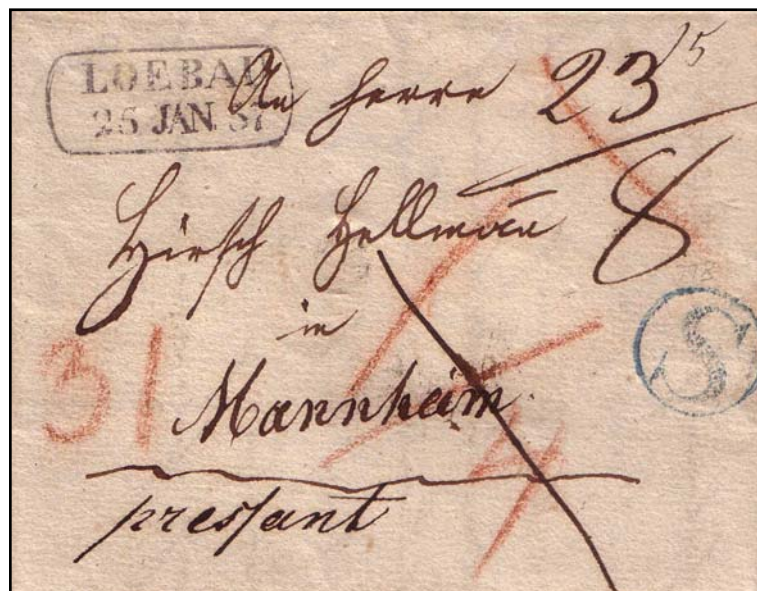 LOEBAU
25 JAN. 37
An Herrn
23 15
8
Hirsch Hellmann
in
S
31
Mannheim
4
pressant